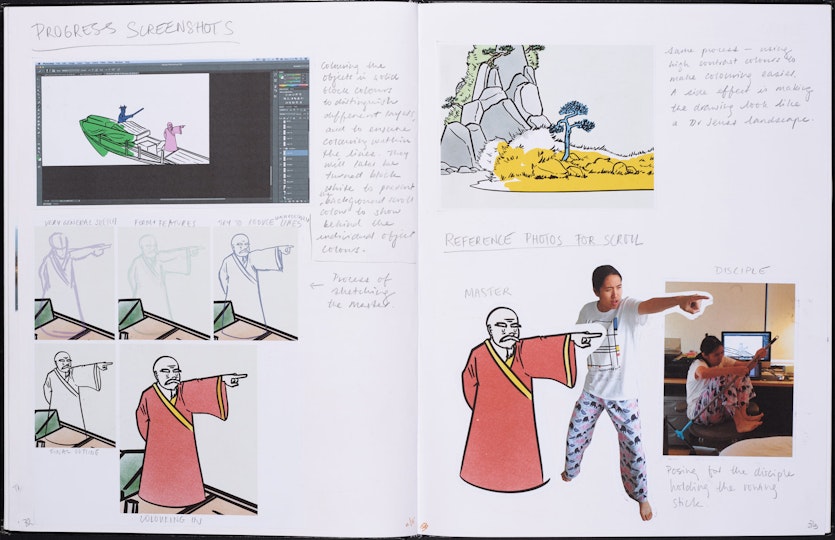 PROGRESS SCREENSHOTS
Colouring the
objects in solid
block colours
to distinguish
different layers,
and to ensure
colouring within
the lines. They
will later be
turned block
white to prevent
background scroll
colour to show
behind the
individual object
colours.
VERY GENERAL SKETCH
FORM FEATURES
TRY TO PRODUCE LINES
← Process of
sketching
the Master.
COLOURING IN
Same process - using
high contrast colours to
make colouring easier.
A side effect is making
the drawing look like
a Dr Seuss landscape.
REFERENCE PHOTOS FOR SCROLL
MASTER
DISCIPLE
Posing for the disciple
holding the rowing
stick.